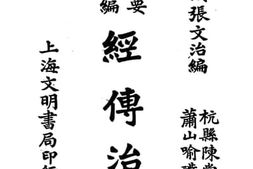 張文治編
杭縣陳
蕭山喻
要
編
經傳治
上海文明書局印